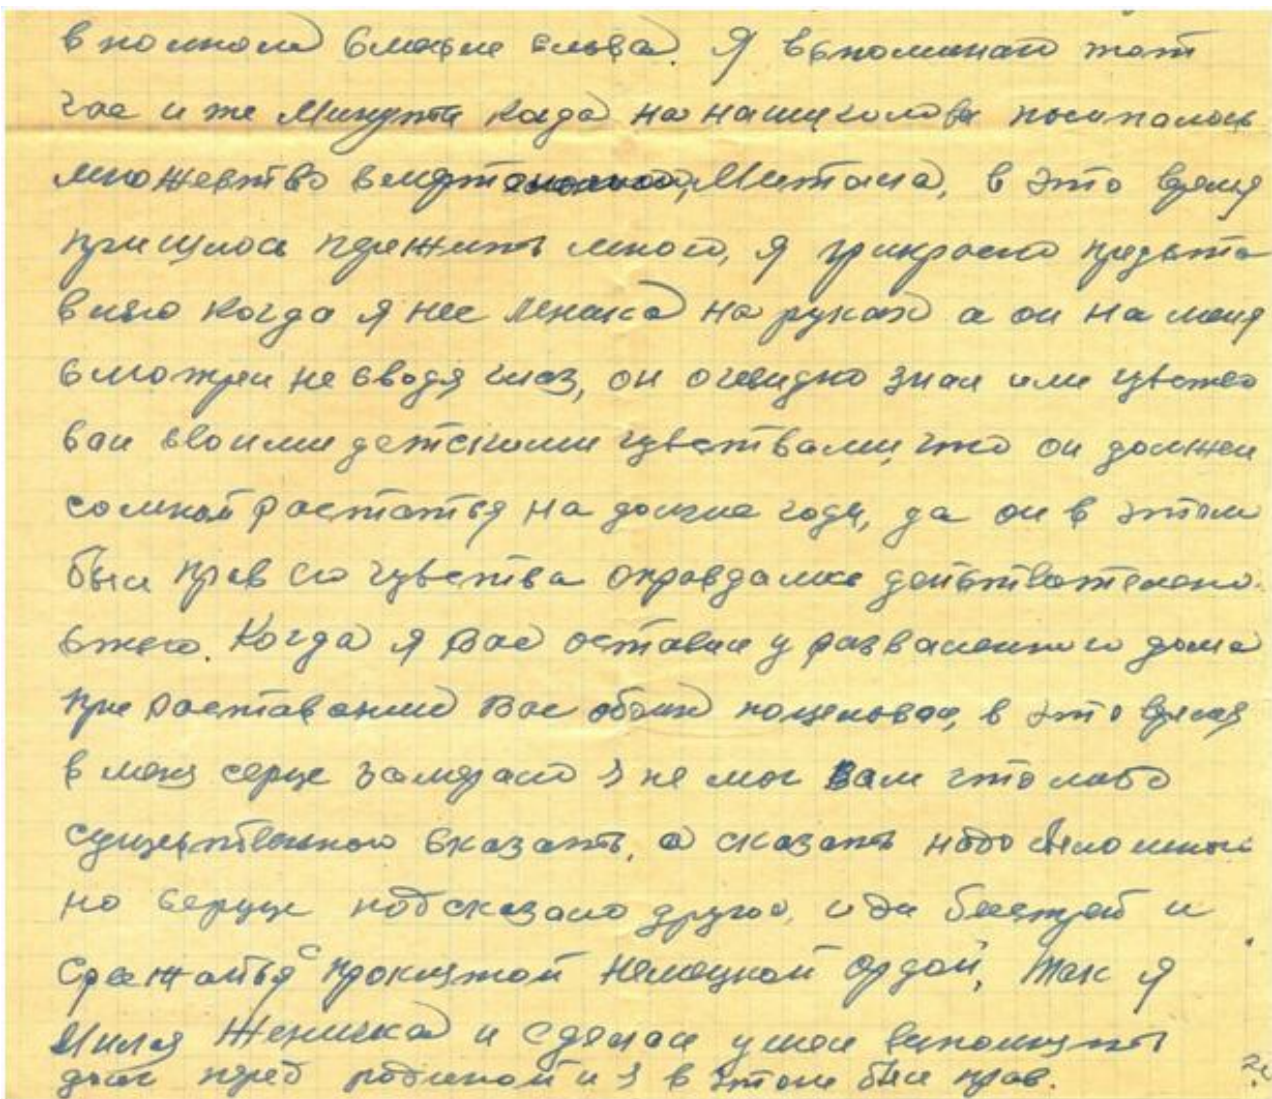 в полном смысле слова. Я вспоминаю тот
час и те минуты когда на наши головы посыпалось
множество смерт металла, в это время
пришлось пережить много, я прикрасно предста
вляю когда я нес Мика на руках а он на меня
смотрел не сводя глаз, он очевидно знал или чувство
вал своими детскими чувствами, что он должен
сомной растаться на долгие годы, да он в этом
был прав его чувства оправдались действительно.
Когда я вас оставил у разваленного дома
при раставании вас обоих поцеловал, в это время
в меня серце замерало я не мог вам что либо
существенного сказать, а сказать надо было много
но серце подсказало другое, иди быстрей и
сражаться с проклятой немецкой ордой, так я
милая Женичка и сделал ушел выполнять
долг перед родиной и я в этом был прав.